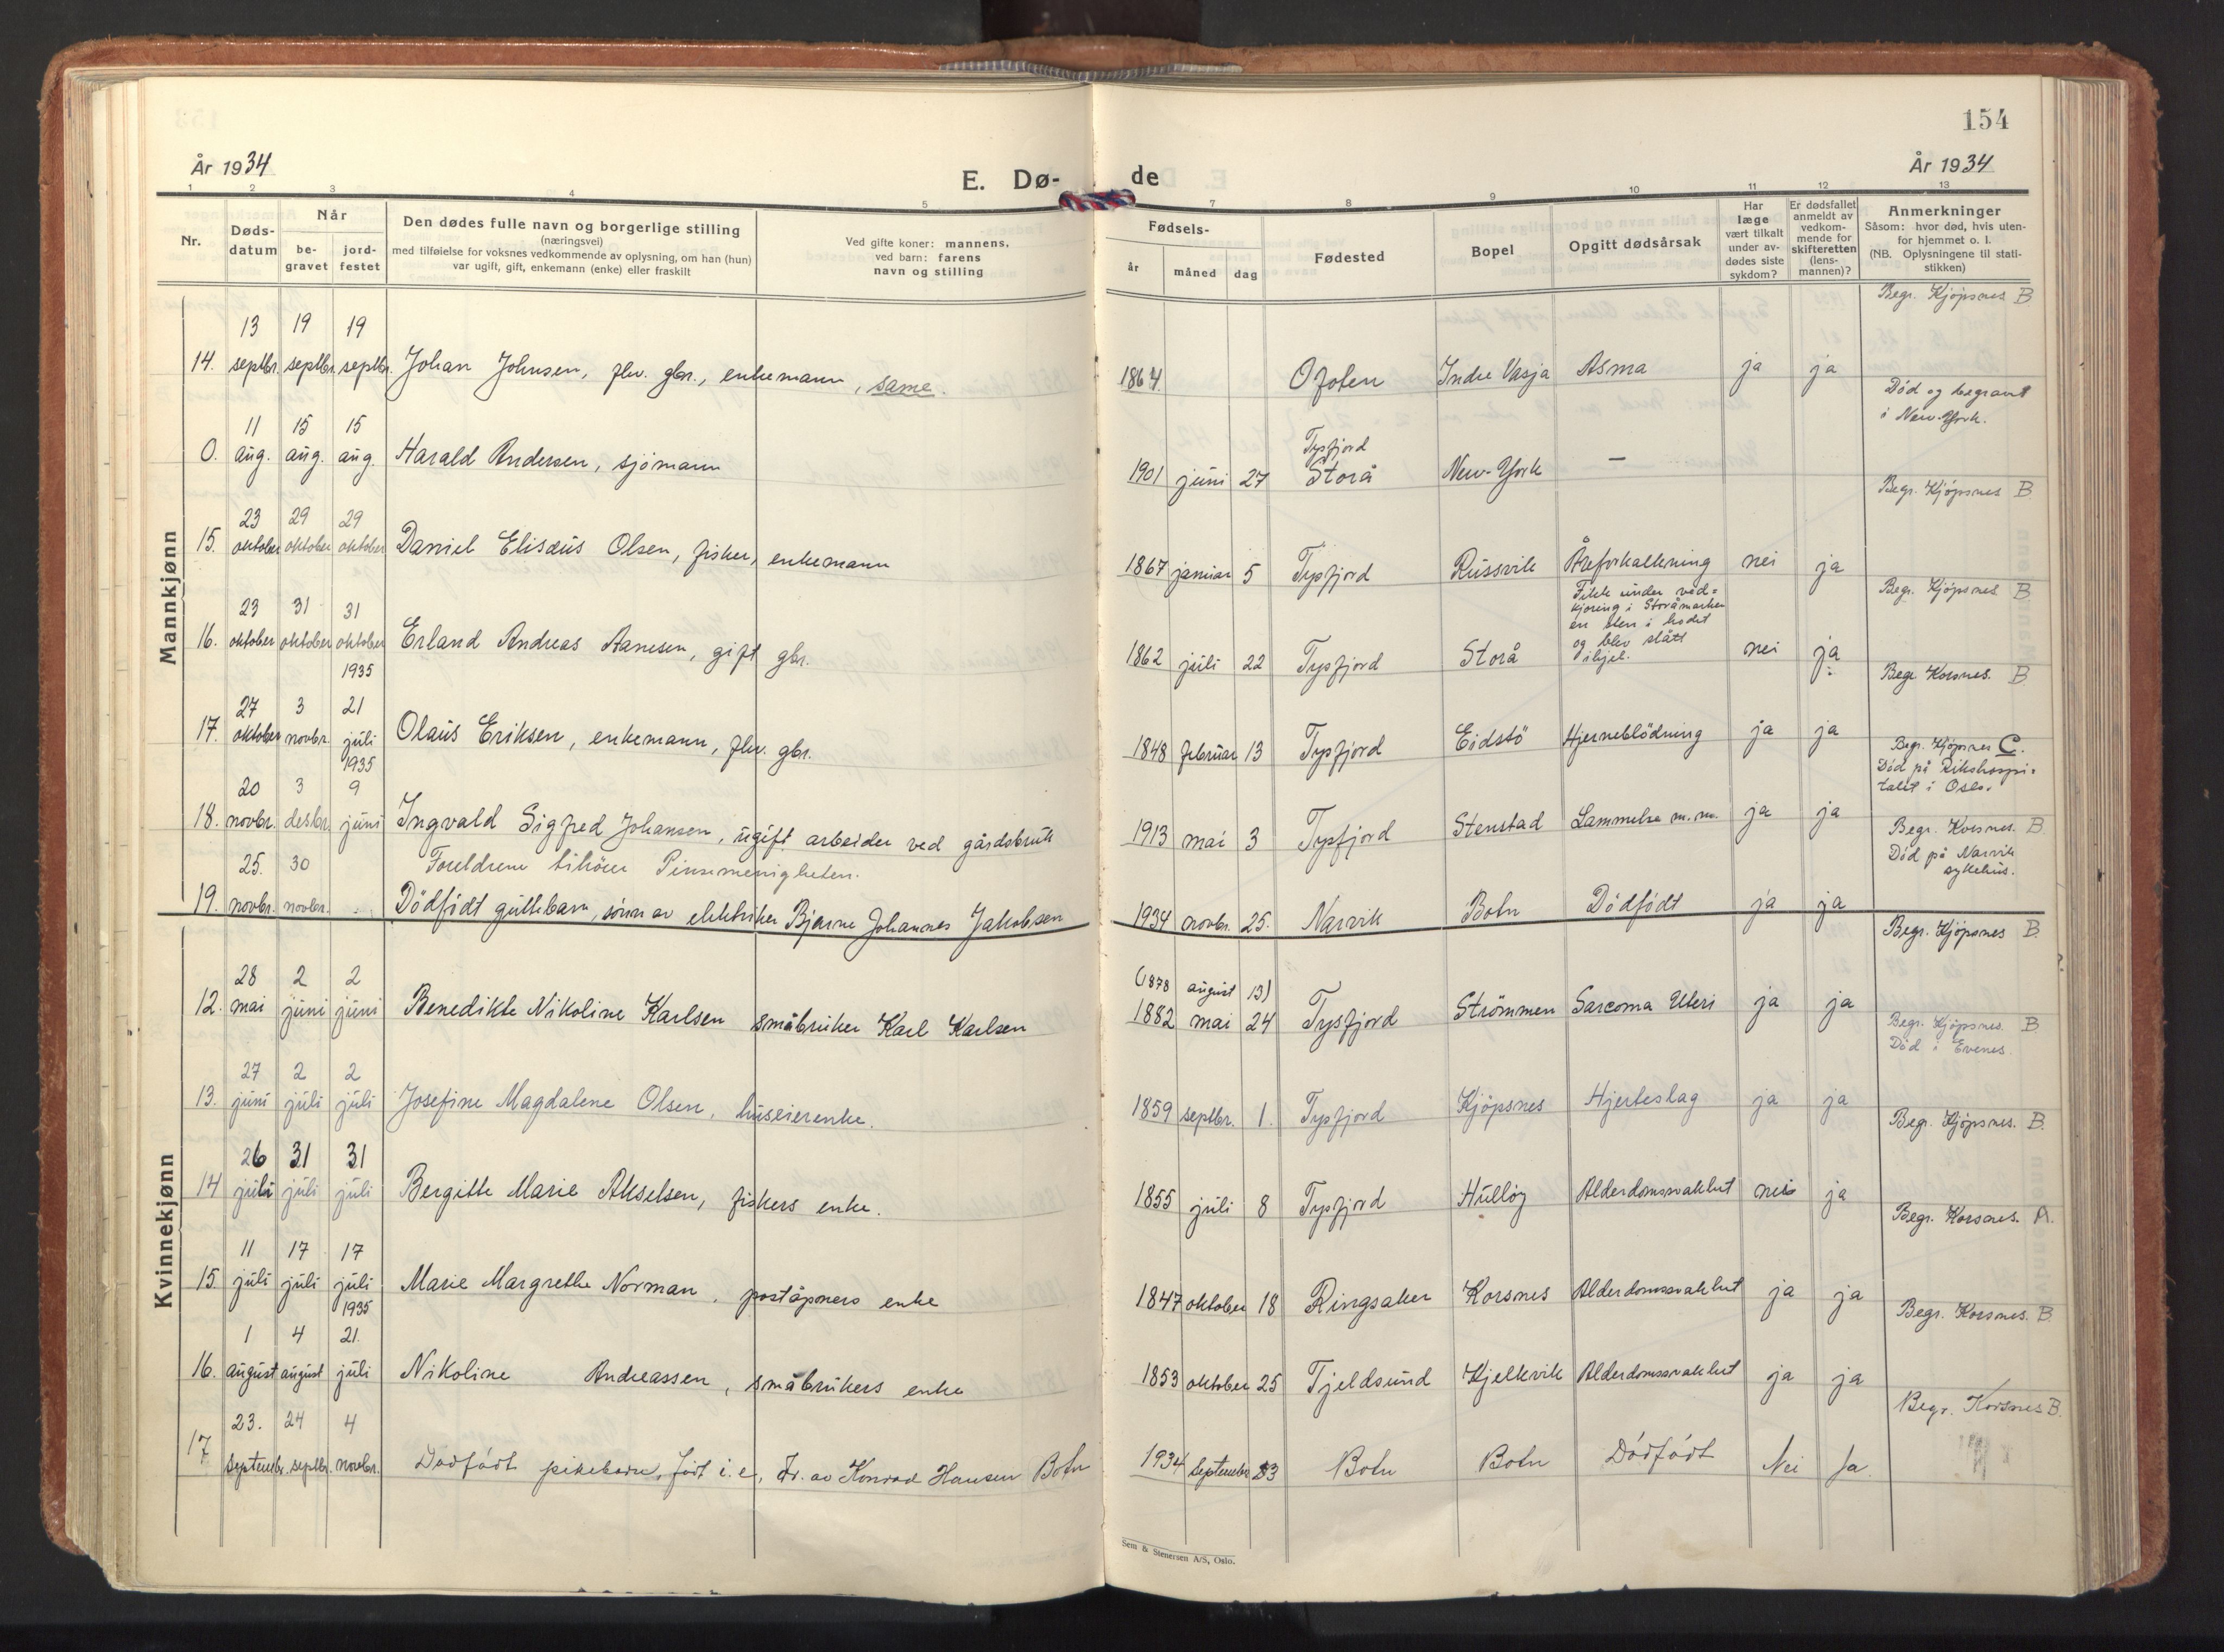 154
År 1934
År 1934
E. Dø- de
1 2 3 4 5 7 8 9 10 11 12 13
Nr.
Døds-
datum
Når
be-
gravet
jord-
festet
Den dødes fulle navn og borgerlige stilling
(næringsvei)
med tilføielse for voksnes vedkommende av oplysning, om han (hun)
var ugift, gift, enkemann (enke) eller fraskilt
Ved gifte koner: mannens,
ved barn: farens
navn og stilling
Fødsels-
år måned dag
Fødested
Bopel
Opgitt dødsårsak
Har
læge
vært tilkalt
under av-
dødes siste
sykdom?
Er dødsfallet
anmeldt av
vedkom-
mende for
skifteretten
(lens-
mannen)?
Anmerkninger
Såsom: hvor død, hvis uten-
for hjemmet o. l.
(NB. Oplysningene til stati-
stikken)
Mannkjønn
13 19 19
14. septbr. septbr. septbr. Johan Johnsen, fhv. gbr., enkemann, same. 1864. Ofoten Indre Vasja Asma ja ja
Begr. Kjöpsnes B
11 15 15
O. aug. aug. aug. Harald Andersen, sjömann 1901 juni 27 Tysfjord Storå New-York —
Död og begravet
i New-York.
23 29 29
15. oktober oktober oktober Daniel Elisæus Olsen, fisker, enkemann 1867 januar 5 Tysfjord Russvik Åreforkalkning nei ja
Begr. Kjöpsnes B
23 31 31
16. oktober oktober oktober Erland Andreas Aanesen, gift gbr. 1862 juli 22 Tysfjord Storå
Fikk under ved-
kjöring i Storåmarken
en sten i hodet
og blev slått
ihjel.
nei ja
Begr. Kjöpsnes B
1935
27 3 21
17. oktober novbr. juli Olaus Eriksen, enkemann, fhv. gbr. 1848 februar 13 Tysfjord Eidstö Hjerneblödning ja ja
Begr Korsnes. B
1935
20 3 9
18. novbr. desbr. juni Ingvald Sigfred Johansen, ugift arbeider ved gårdsbruk 1913 mai 3 Tysfjord Stenstad Lammelse m.m. ja ja
Begr. Kjöpsnes C.
Död på Rikshospi-
talet i Oslo.
25. 30 Foreldrene tilhörer Pinsemenigheten.
19. novbr. novbr. Dödfödt guttebarn, sönn av elektriker Bjarne Johannes Jakobsen 1934 novbr. 25. Narvik Botn Dödfödt ja ja
Begr. Korsnes. B
Död på Narvik
sykehus.
Kvinnekjønn
28 2 2 (1878 august 13)
12. mai juni juni Benedikte Nikoline Karlsen småbruker Karl Karlsen 1882 mai 24 Tysfjord Strömmen Sarcoma Uteri ja ja
Begr. Kjöpsnes B.
27 2 2
13. juni juli juli Josefine Magdalene Olsen, huseierenke. 1859 septbr. 1. Tysfjord Kjöpsnes Hjerteslag ja ja
Begr. Kjöpsnes. B
Död i Evenes.
26 31 31
14 juli juli juli Bergitte Marie Akselsen, fiskers enke. 1855 juli 8 Tysfjord Hulløy Alderdomssvakhet nei ja
Begr. Kjöpsnes. B.
11 17 17
15. juli juli juli Marie Margrethe Norman, poståpners enke 1847 oktober 18 Ringsaker Korsnes Alderdomssvakhet ja ja
Begr. Korsnes. A.
1935
1 4 21.
16. august august juli Nikoline Andreassen, småbrukers enke 1853 oktober 25 Tjeldsund Kjelkvik Alderdomssvakhet ja ja
Begr. Korsnes. B.
23. 24 4
17 septembr. septbr. novbr. Dödfödt pikebarn, födt i.e, Dr. av Konrad Hansen Botn 1934 septembr 23 Botn Botn Dödfödt Nei Ja
Begr. Korsnes B.
Sem & Stenersen A/S, Oslo.